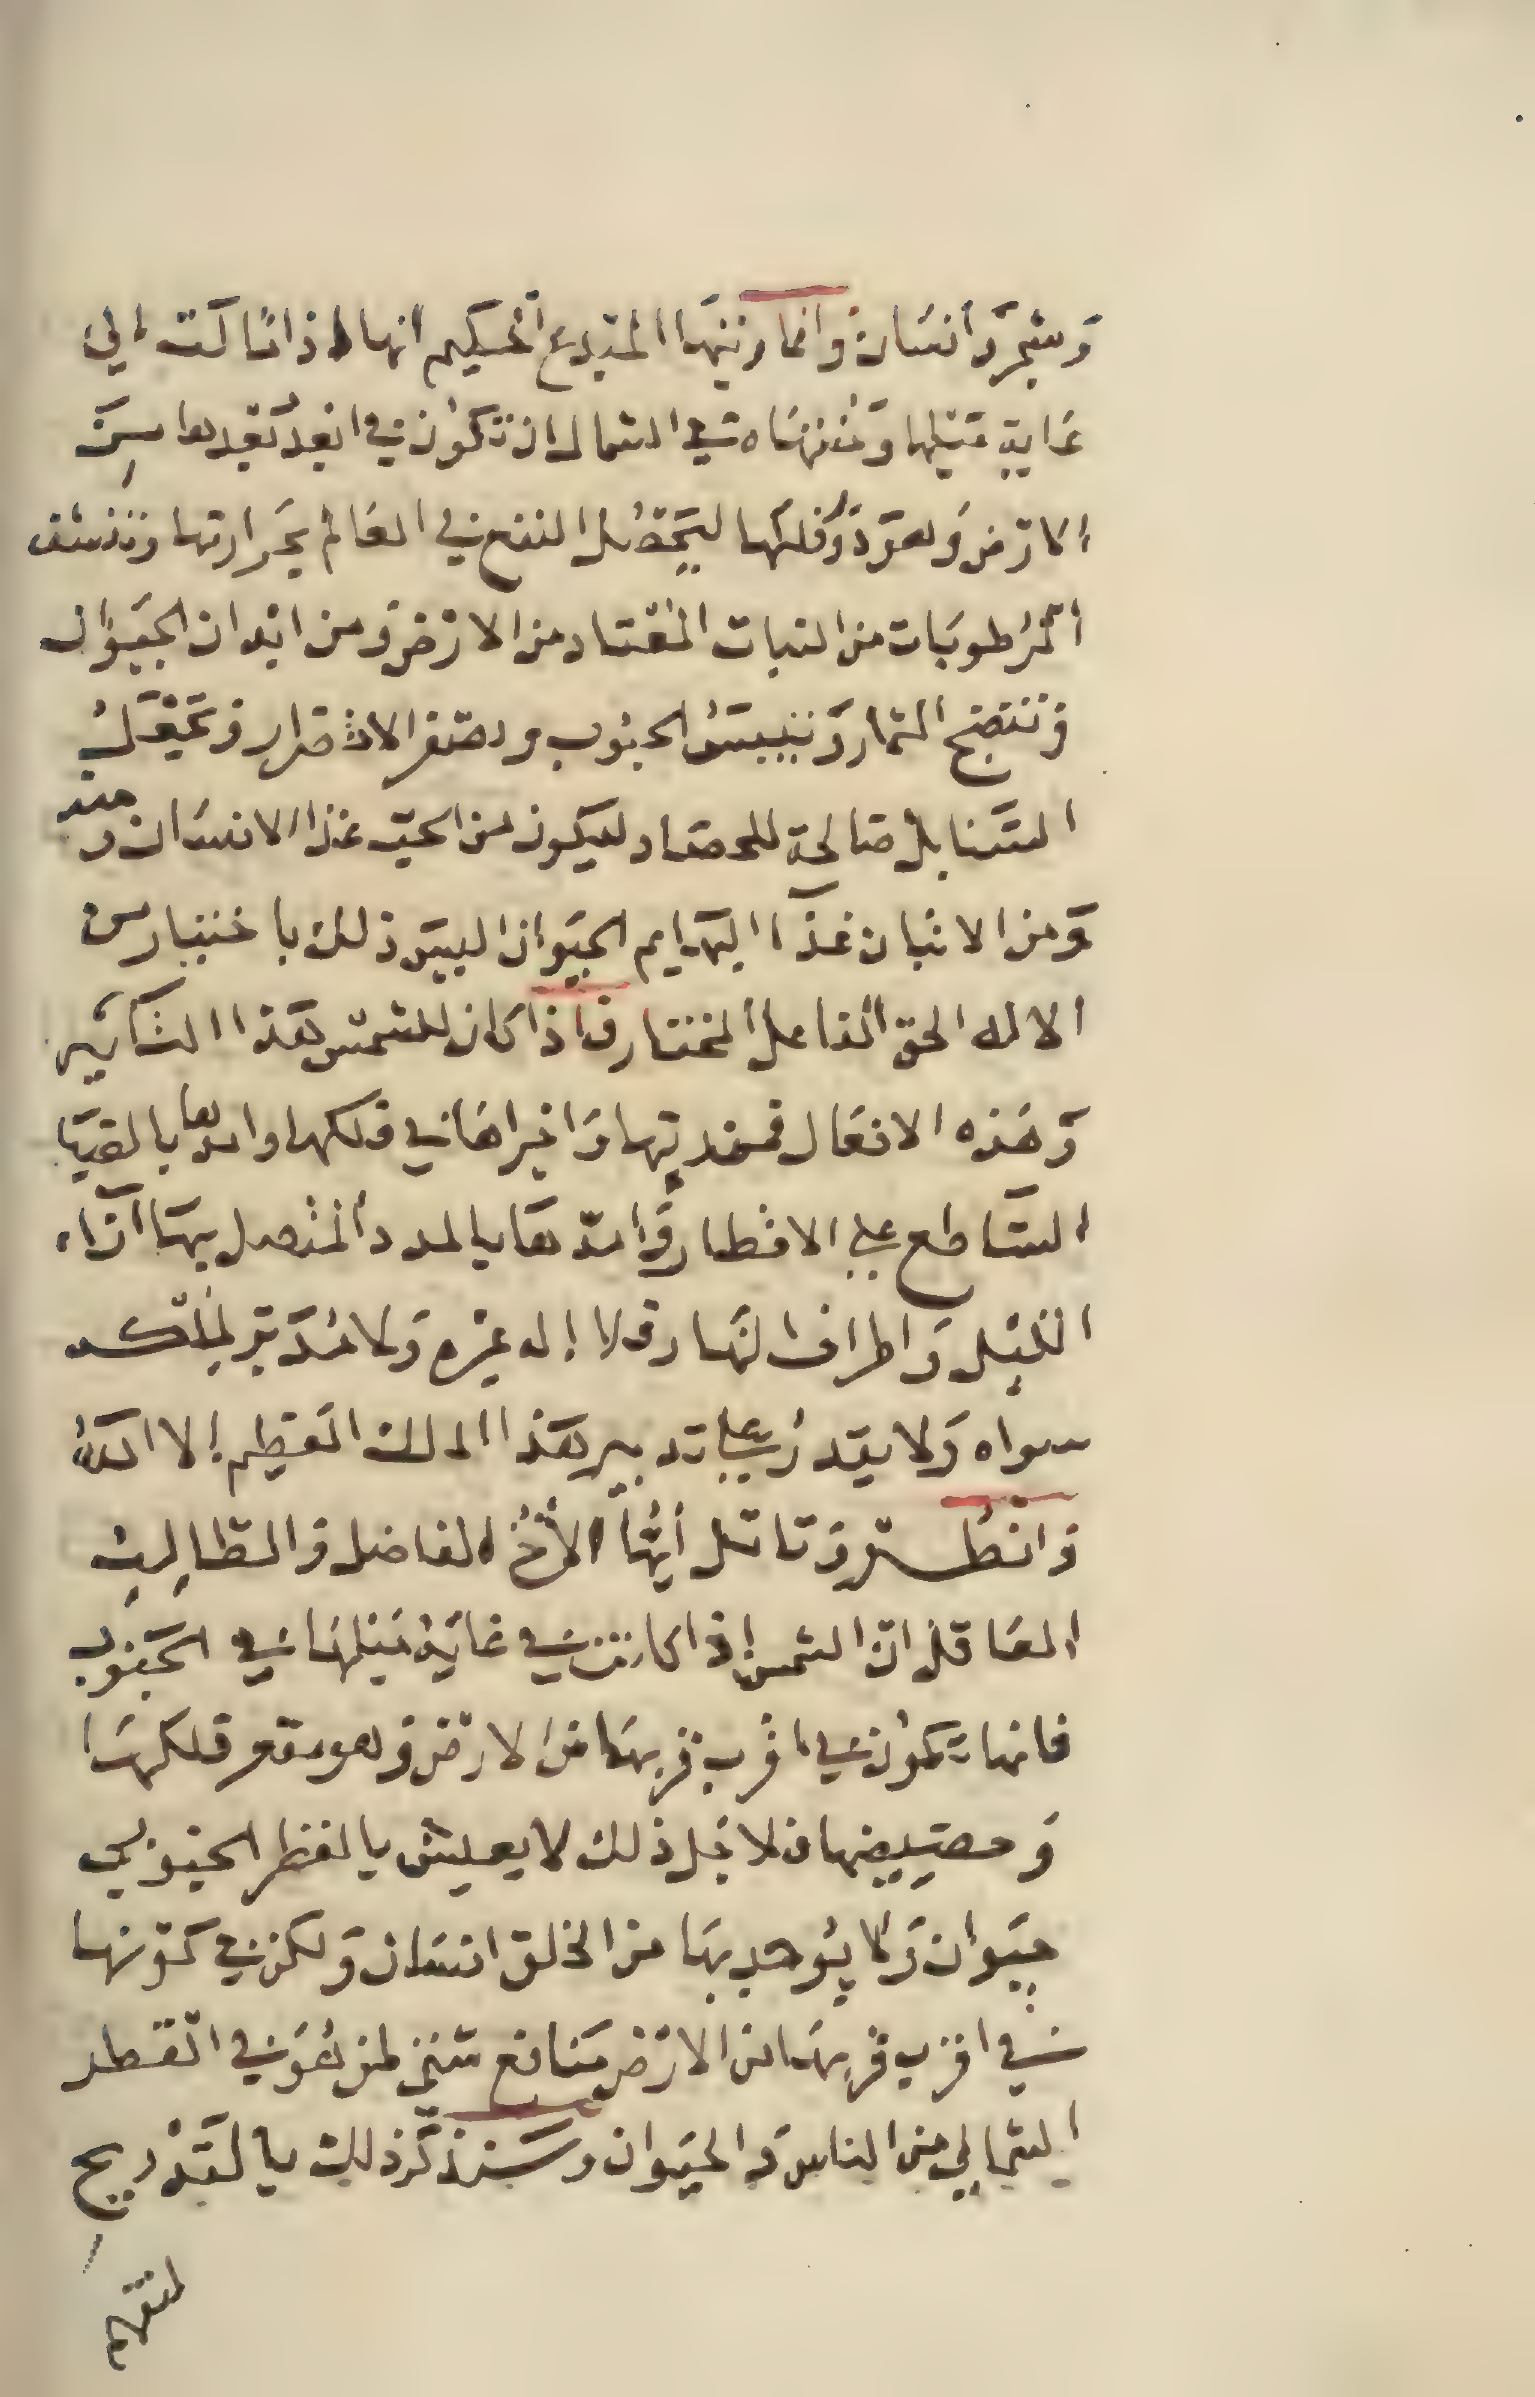 وشجر وانسان وانما رتبها المبدع الحكيم انها اذا مالت الي
غاية ميلها ومنتهاه في الشمال ان تكون في ابعد بعدها من
الارض وهو فلكها ليحصل النفع في العالم بحرارتها وتنشف
الرطوبات من النبات المعتاد من الارض ومن ابدان الحيوان
وتنضج الثمار وتيبس الحبوب و الاثمار وتجعل
السنابل صالحة للحصاد ليكون من الحب غذا الانسان ومنه
ومن الاتبان غذا البهايم الحيوان اليس ذلك باختيار من
الاله الحق الفاعل المختار فاذا كان للشمس هذا التاثير
وهذه الافعال فمن رتبها واجراها في فلكها وامدها بالضيا
الساطع علي الاقطار وامدها بالمدد المتصل بها آناء
الليل واطراف النهار فلا إله غيره ولا مدبر لملكه
سواه ولا يقدر علي تدبير هذا الملك العظيم إلا الله
وانظر وتامل أيها الأخ الفاضل والطالب
العاقل ان الشمس إذا كانت في غاية ميلها في الجنوب
فانها تكون في اقرب قربها من الارض وهو مقعر فلكها
وحضيضها فلاجل ذلك لا يعيش بالقطر الجنوبي
حيوان ولا يوجد بها من الخلق انسان ولكن في كونها
في اقرب قربها من الارض منافع شتى لمن هو في القطر
الشمالي من الناس والحيوان وسنذكر ذلك بالتدريج
لتفهم